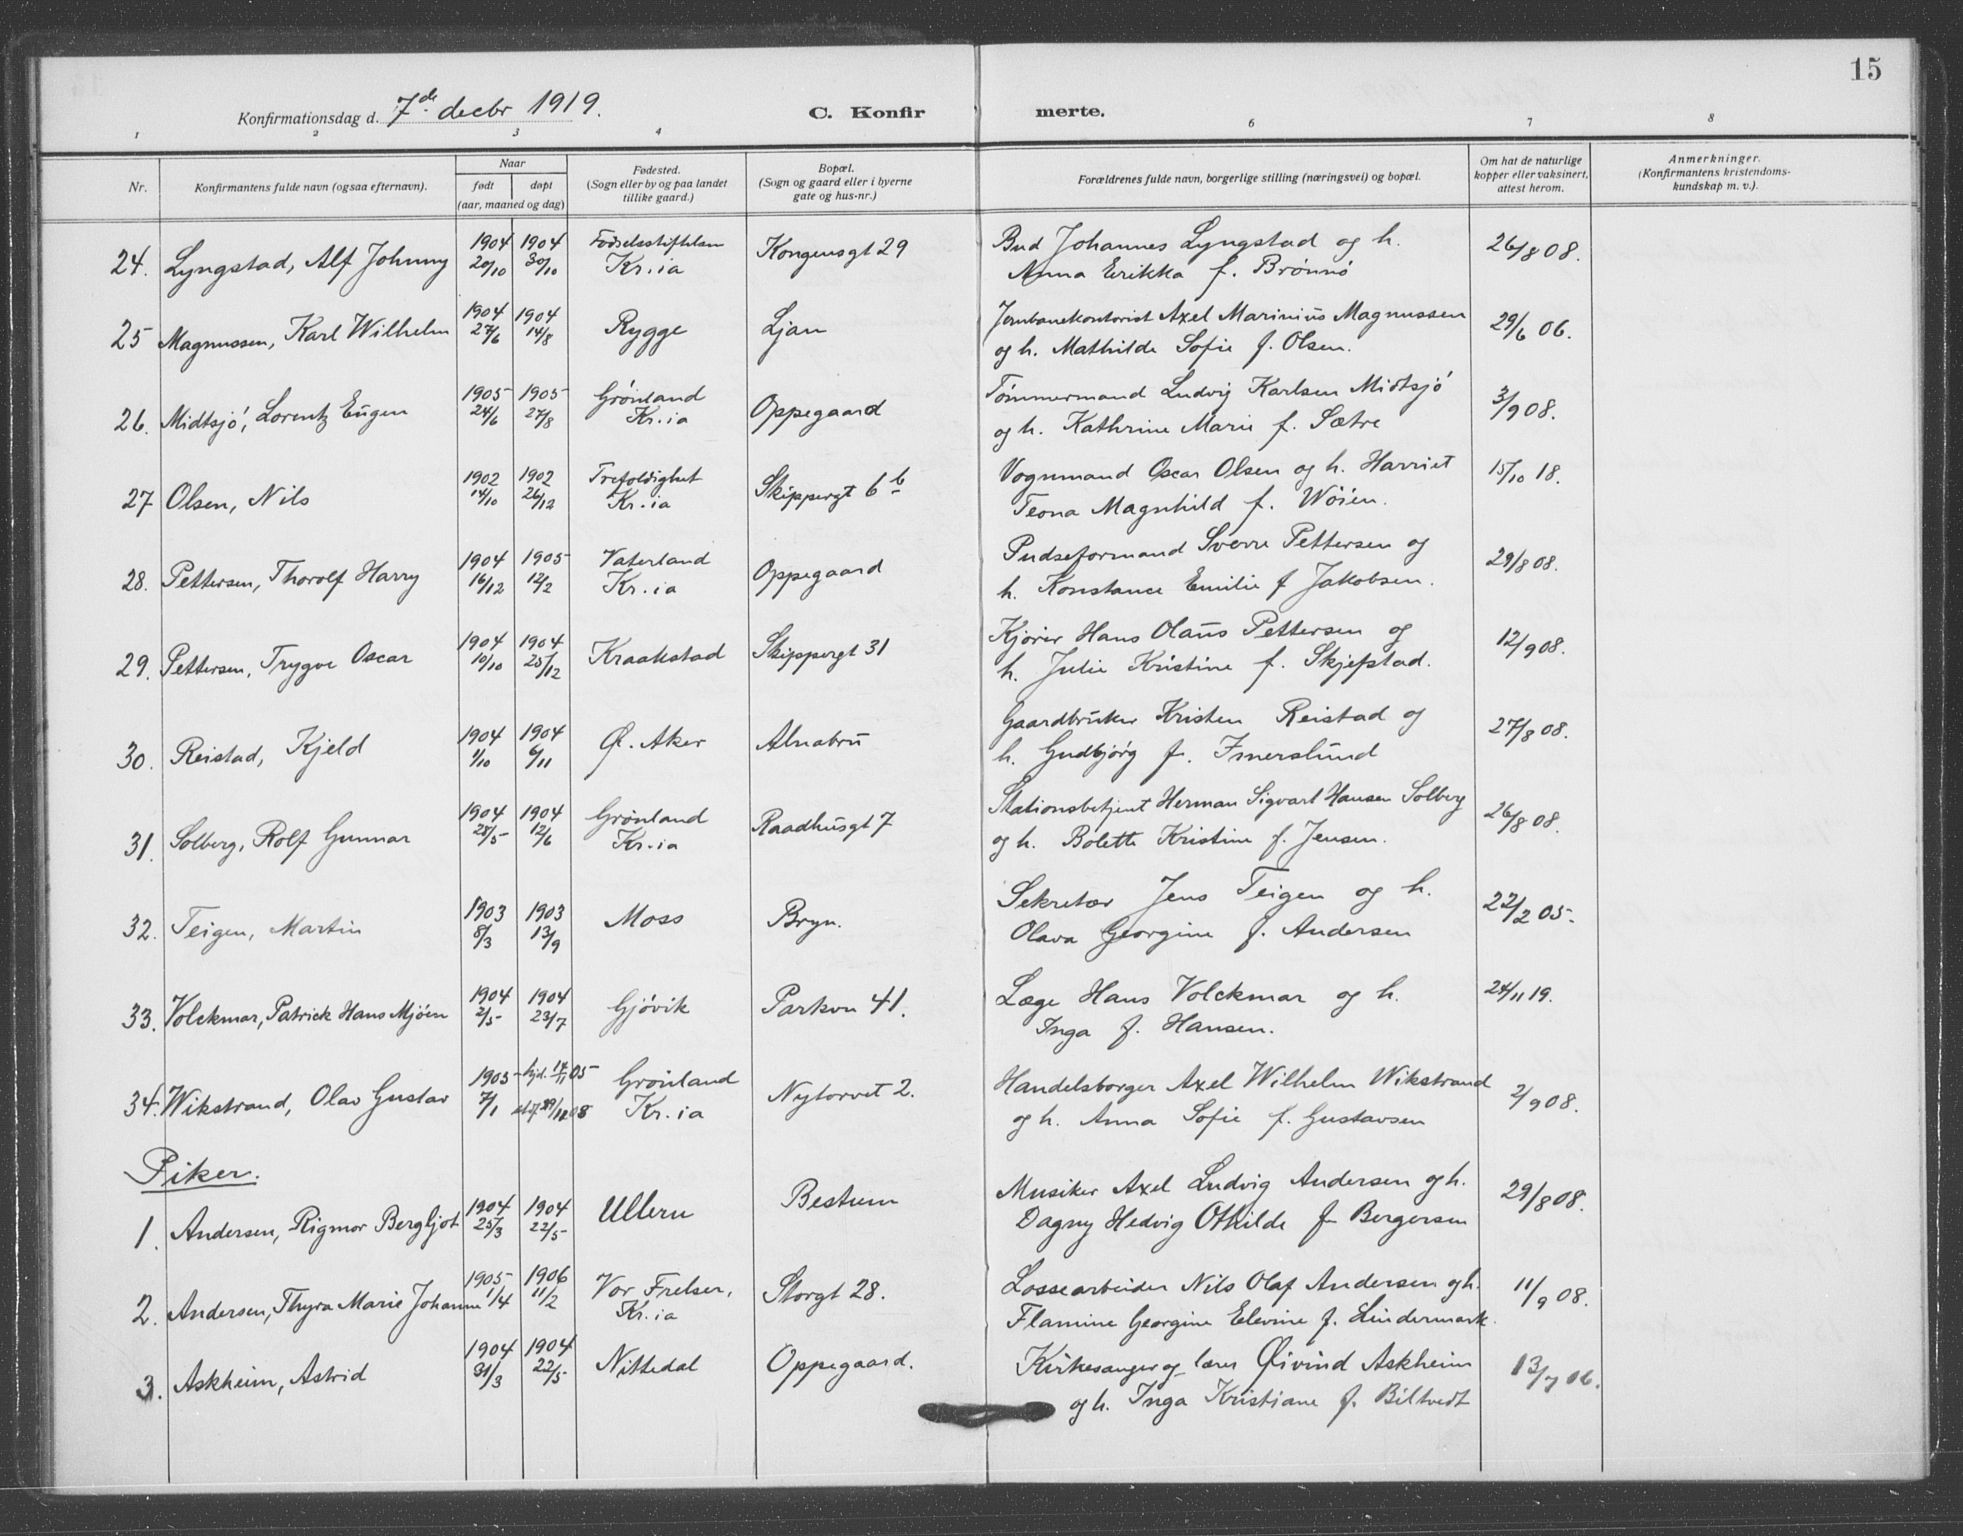 15
Konfirmationsdag d. 7de decbr 1919. C. Konfir merte.
1 2 3 4 6 7 8
Nr. Konfirmantens fulde navn (ogsaa efternavn). Naar født døpt (aar, maaned og dag) Fødested. (Sogn eller by og paa landet tillike gaard.) Bopæl. (Sogn og gaard eller i byerne gate og hus-nr.) Forældrenes fulde navn, borgerlige stilling (næringsvei) og bopæl. Om hat de naturlige kopper eller vaksinert, attest herom. Anmerkninger. (Konfirmantens kristendoms-kundskap m. v.)
24. Lyngstad, Alf Johnny 1904 20/10 1904 30/10 Fødselsstiftelsen Kr.ia Kongensgt 29 Bud Johannes Lyngstad og h. 26/8 08.
Anna Erikka f. Brønnø
25 Magnussen, Karl Wilhelm 1904 27/6 1904 14/8 Rygge Ljan Jernbanekontorist Axel Marinius Magnussen 29/6 06.
og h. Mathilde Sofie f. Olsen.
26. Midtsjø, Lorentz Eugen 1905 24/6 1905 27/8 Grønland Kr.ia Oppegaard Tømmermand Ludvig Karlsen Midtsjø 3/9 08.
og h. Kathrine Marie f. Sætre
27 Olsen, Nils 1902 14/10 1902 26/12 Trefoldighet Kr.ia Skippergt 6b Vognmand Oscar Olsen og h. Harriet 15/10 18.
Teona Magnhild f. Wøien.
28. Pettersen, Thorolf Harry 1904 16/12 1905 12/2 Vaterland Kr.ia Oppegaard Pudseformand Sverre Pettersen og 29/8 08.
h. Konstance Emilie f Jakobsen.
29. Pettersen, Trygve Oscar 1904 10/10 1904 25/12 Kraakstad Skippergt 31 Kjører Hans Olaus Pettersen og 12/9 08.
h. Julie Kristine f. Skjefstad.
30. Reistad, Kjeld 1904 1/10 1904 6/11 Ø. Aker Alnabru Gaardbruker Kristen Reistad og 27/8 08.
h. Gudbjørg f. Imerslund
31. Solberg, Rolf Gunnar 1904 28/5 1904 12/6 Grønland Kr.ia Raadhusgt 7 Stationsbetjent Herman Sigvart Hansen Solberg 26/8 08.
og h. Bolette Kristine f. Jensen.
32. Teigen, Martin 1903 8/3 1903 13/9 Moss Bryn. Sekretær Jens Teigen og h. 22/2 05.
Olava Georgine f. Andersen
33. Volckmar, Patrick Hans Mjøen 1904 2/5 1904 23/7 Gjøvik Parkvn 41. Læge Hans Volckmar og h. 24/11 19.
Inga f. Hansen.
34. Wikstrand, Olav Gustav 1905 7/1 hjd. 17/11 05 Grønland Kr.ia Nytorvet 2. Handelsborger Axel Wilhelm Wikstrand 2/9 08.
og h. Anna Sofie f. Gustavsen
Piker.
1. Andersen, Rigmor Bergljot 1904 25/3 1904 22/5 Ullern Bestum Musiker Axel Ludvig Andersen og h. 29/8 08.
Dagny Hedvig Othilde f Bergersen
2. Andersen, Thyra Marie Johanne 1905 1/4 1906 11/2 Vor Frelser, Kr.ia Storgt 28. Lossearbeider Nils Olaf Andersen og h. 11/9 08.
Flamine Georgine Elevine f. Lindermark.
3. Askheim, Astrid 1904 31/3 1904 22/5 Nittedal Oppegaard. Kirkesanger og lærer Øivind Askheim 13/7 06.
og h. Inga Kristiane f. Biltvedt